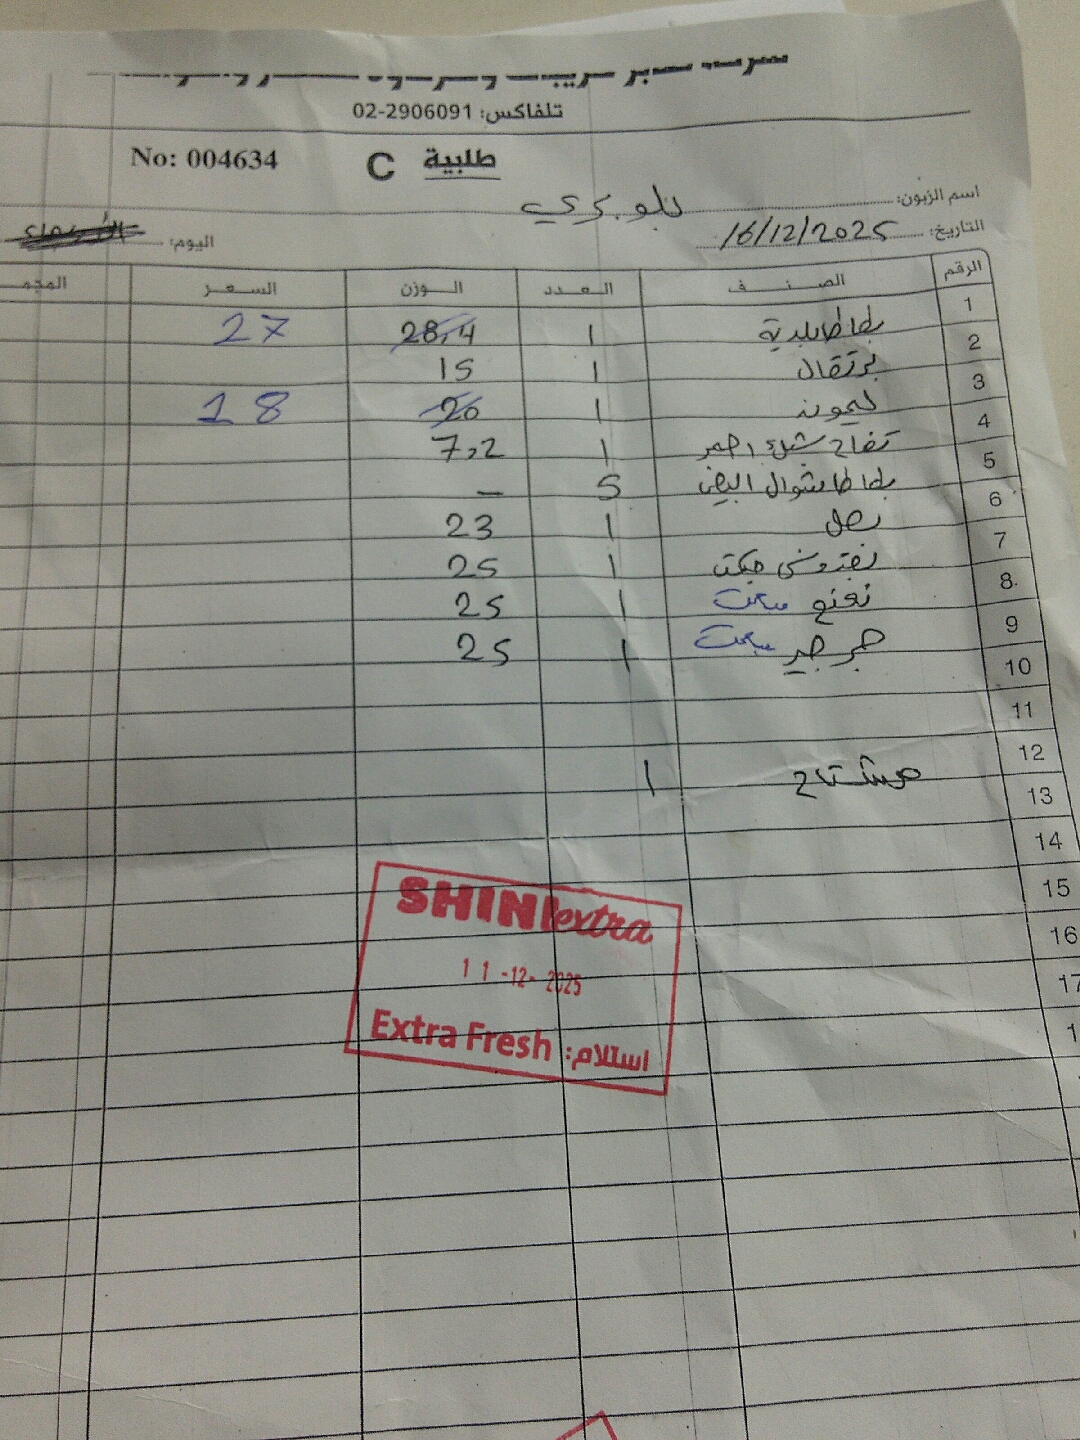 تلفاكس: 02-2906091
No: 004634 C طلبية
اسم الزبون:
التاريخ: 16/12/2025 اليوم: الأربعاء
الرقم الصنف العدد الوزن السعر المجم
1 بطاطا بلدية 1 28,4 27
2 برتقال 1 15
3 ليمون 1 20 18
4 تفاح احمر 1 7,2
5 بطاطا شوال ابيض 5 -
6 بصل 1 23
7 بقدونس 1 25
8 نعنع 1 25
9 جرجير 1 25
10
11
12 مشتاح 1
13
14
15
16
17
SHINI extra
11-12-2025
Extra Fresh استلام: